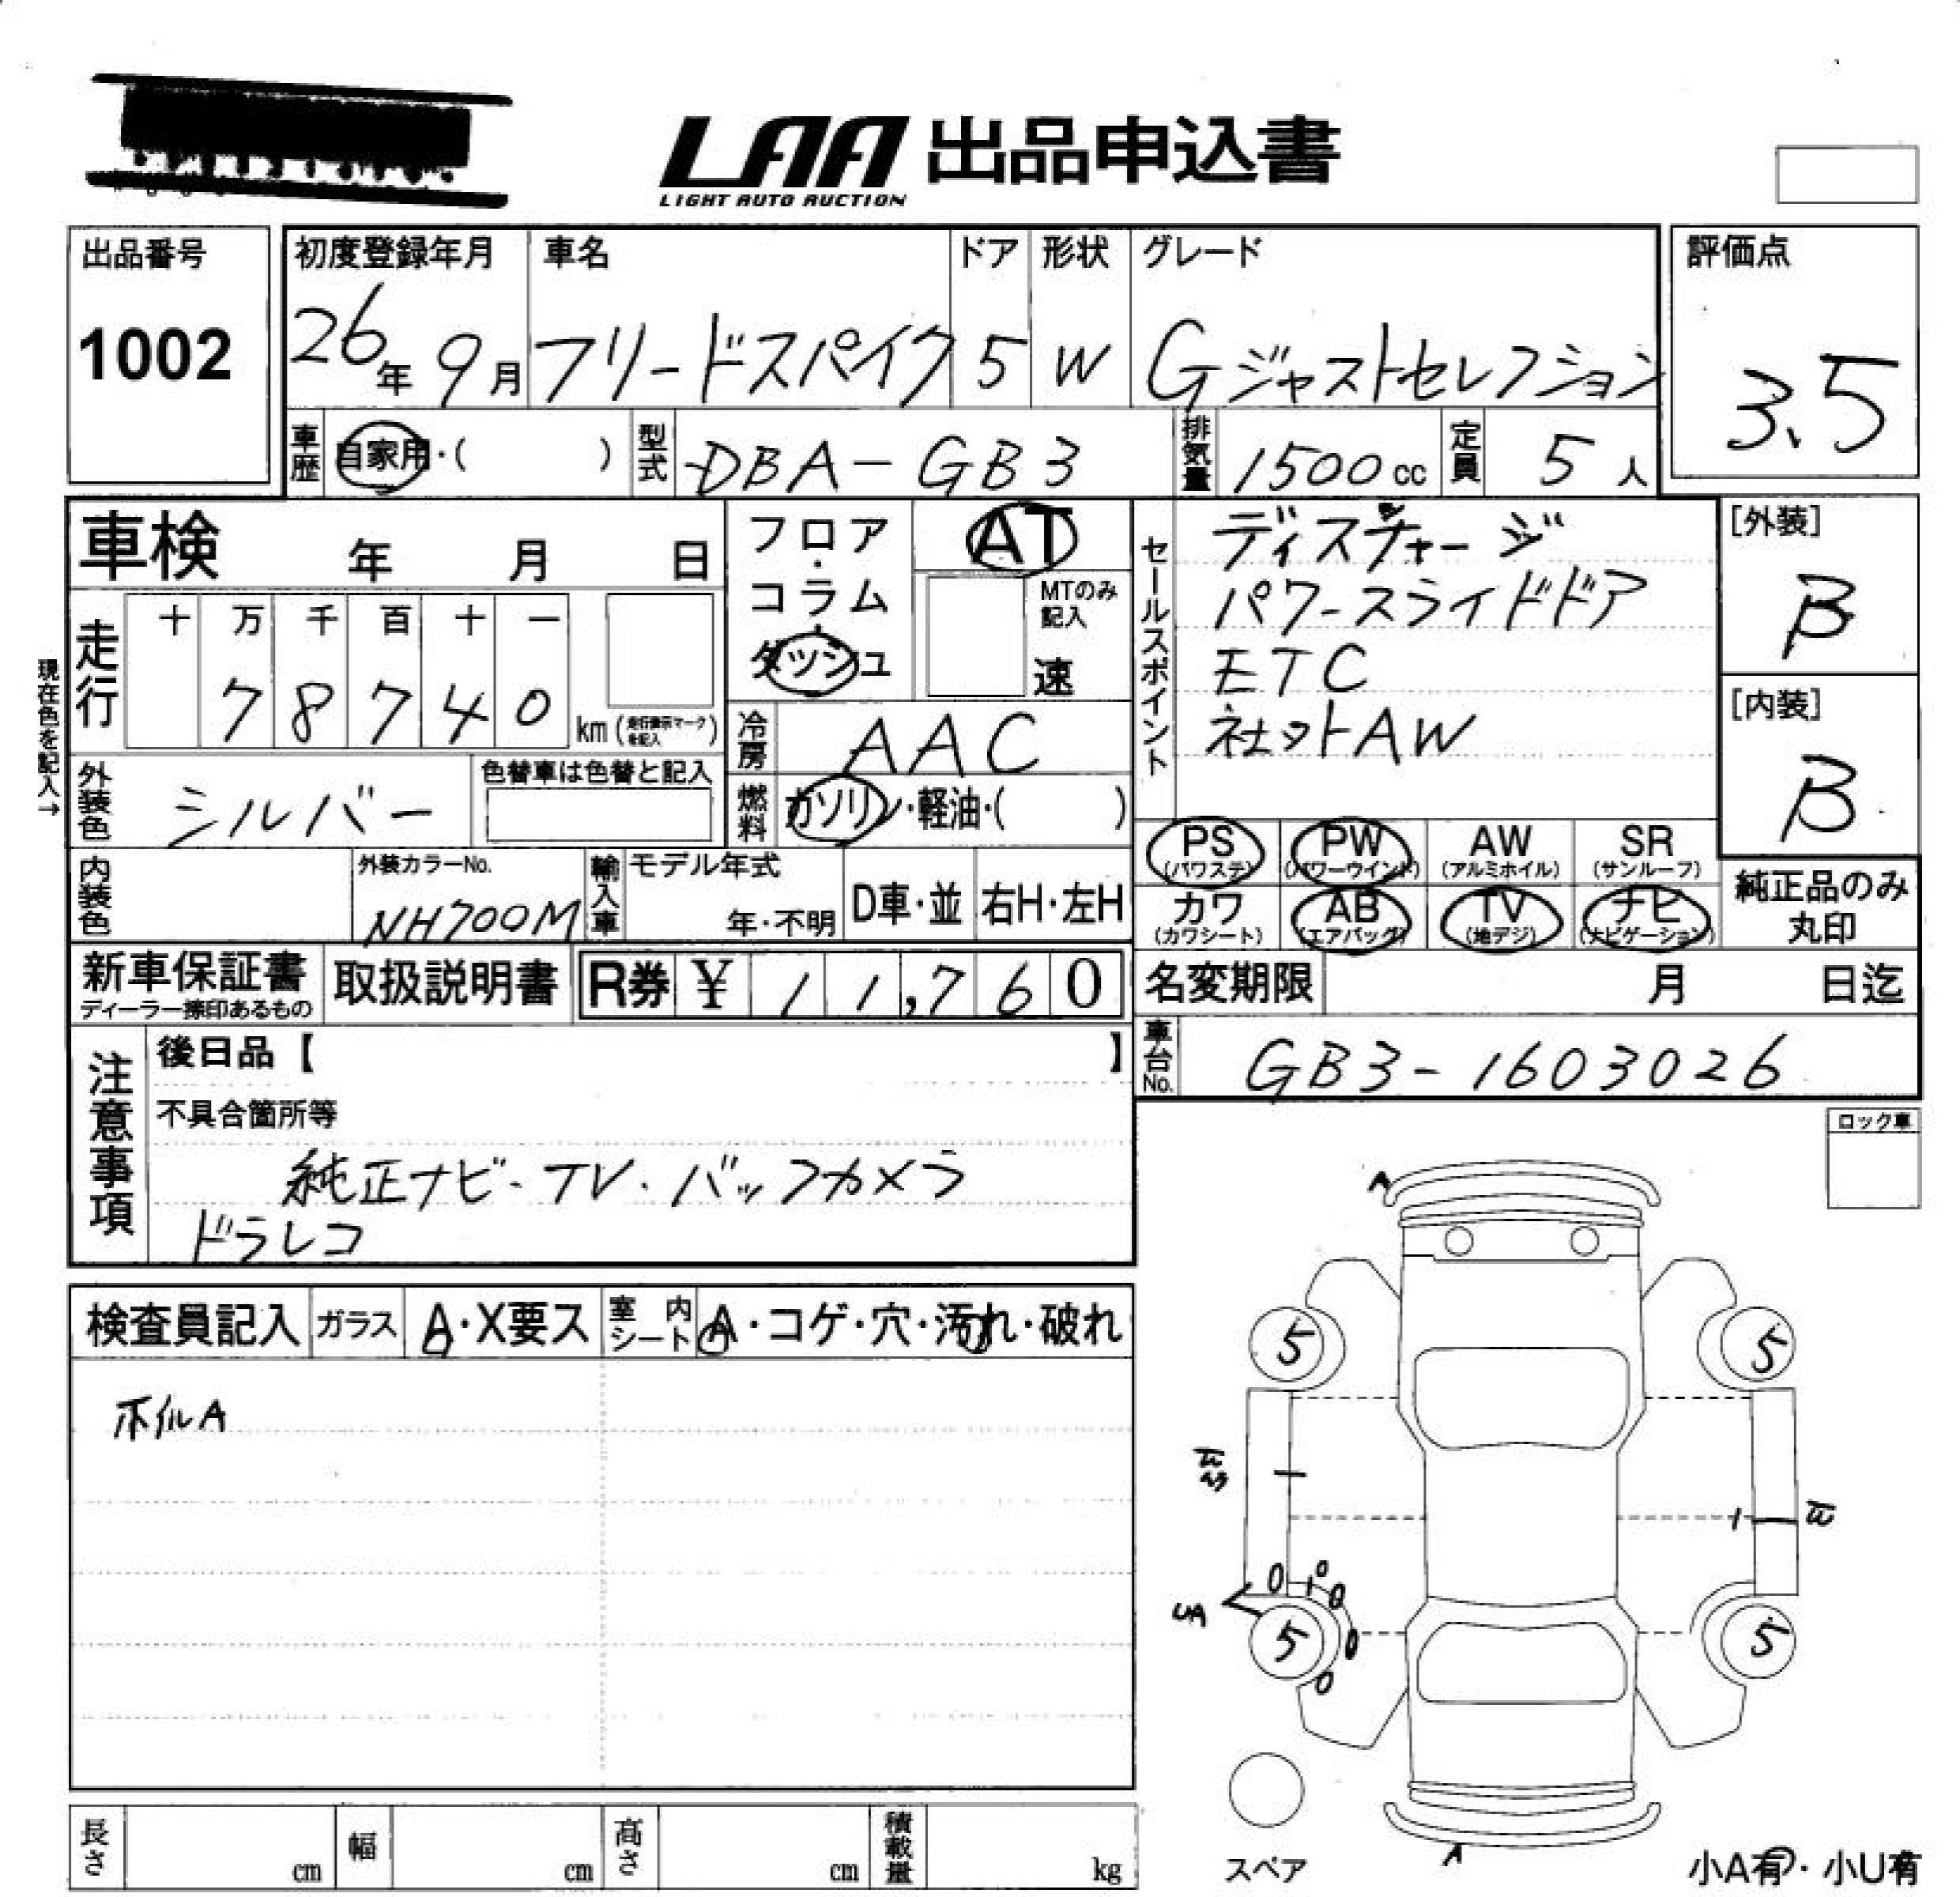 LAA 出品申込書
LIGHT AUTO AUCTION
出品番号
1002
初度登録年月 車名 ドア 形状 グレード
26年 9月 フリードスパイク 5 W Gジャストセレクション
評価点
3.5
車歴 自家用・( ) 型式 DBA-GB3 排気量 1500cc 定員 5人
車検 年 月 日
フロア・コラム・ダッシュ
AT
MTのみ記入
速
走行 十 万 千 百 十 一
7 8 7 4 0 km (走行表示マークを記入)
現在色を記入→
外装色 シルバー
色替車は色替と記入
冷房 AAC
燃料 ガソリン・軽油・( )
セールスポイント
ディスチャージ
パワースライドドア
ETC
社外AW
[外装]
B
[内装]
B
PS (パワステ) PW (パワーウインド) AW (アルミホイル) SR (サンルーフ)
カワ (カワシート) AB (エアバッグ) TV (地デジ) ナビ (ナビゲーション)
純正品のみ丸印
内装色
外装カラーNo.
NH700M
輸入車 モデル年式
年・不明 D車・並 右H・左H
新車保証書
ディーラー捺印あるもの
取扱説明書 R券 ¥ 11,760
名変期限 月 日迄
車台No. GB3-1603026
注意事項
後日品【 】
不具合箇所等
純正ナビ・TV・バックカメラ
ドラレコ
ロック車
検査員記入 ガラス A・X要ス 室内シート A・コゲ・穴・汚れ・破れ
ホイルA
A
5 5
UA
5 5
A
スペア
小A有・小U有
長さ cm 幅 cm 高さ cm 積載量 kg